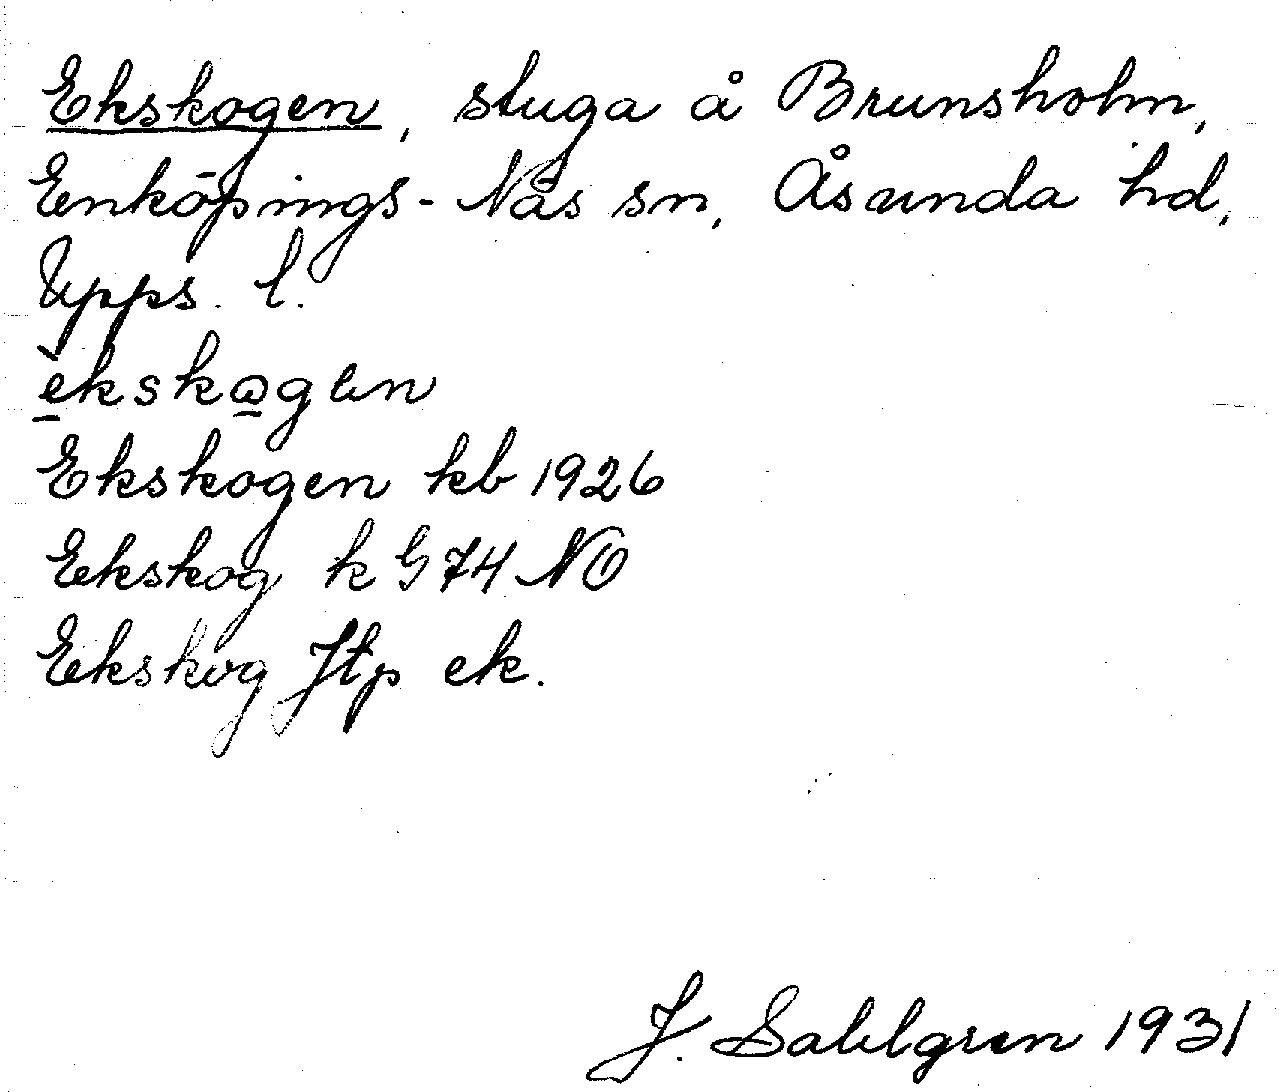 Ekskogen, stuga å Brunsholm,
Enköpings-Näs sn, Åsunda hd,
Upps. l.
èkskωgən
Ekskogen kb 1926
Ekskog k G 74 NO
Ekskog Jtp ek.
J. Sahlgren 1931